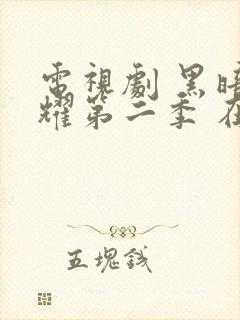 電視劇黑暗
耀第二季在
五塊錢